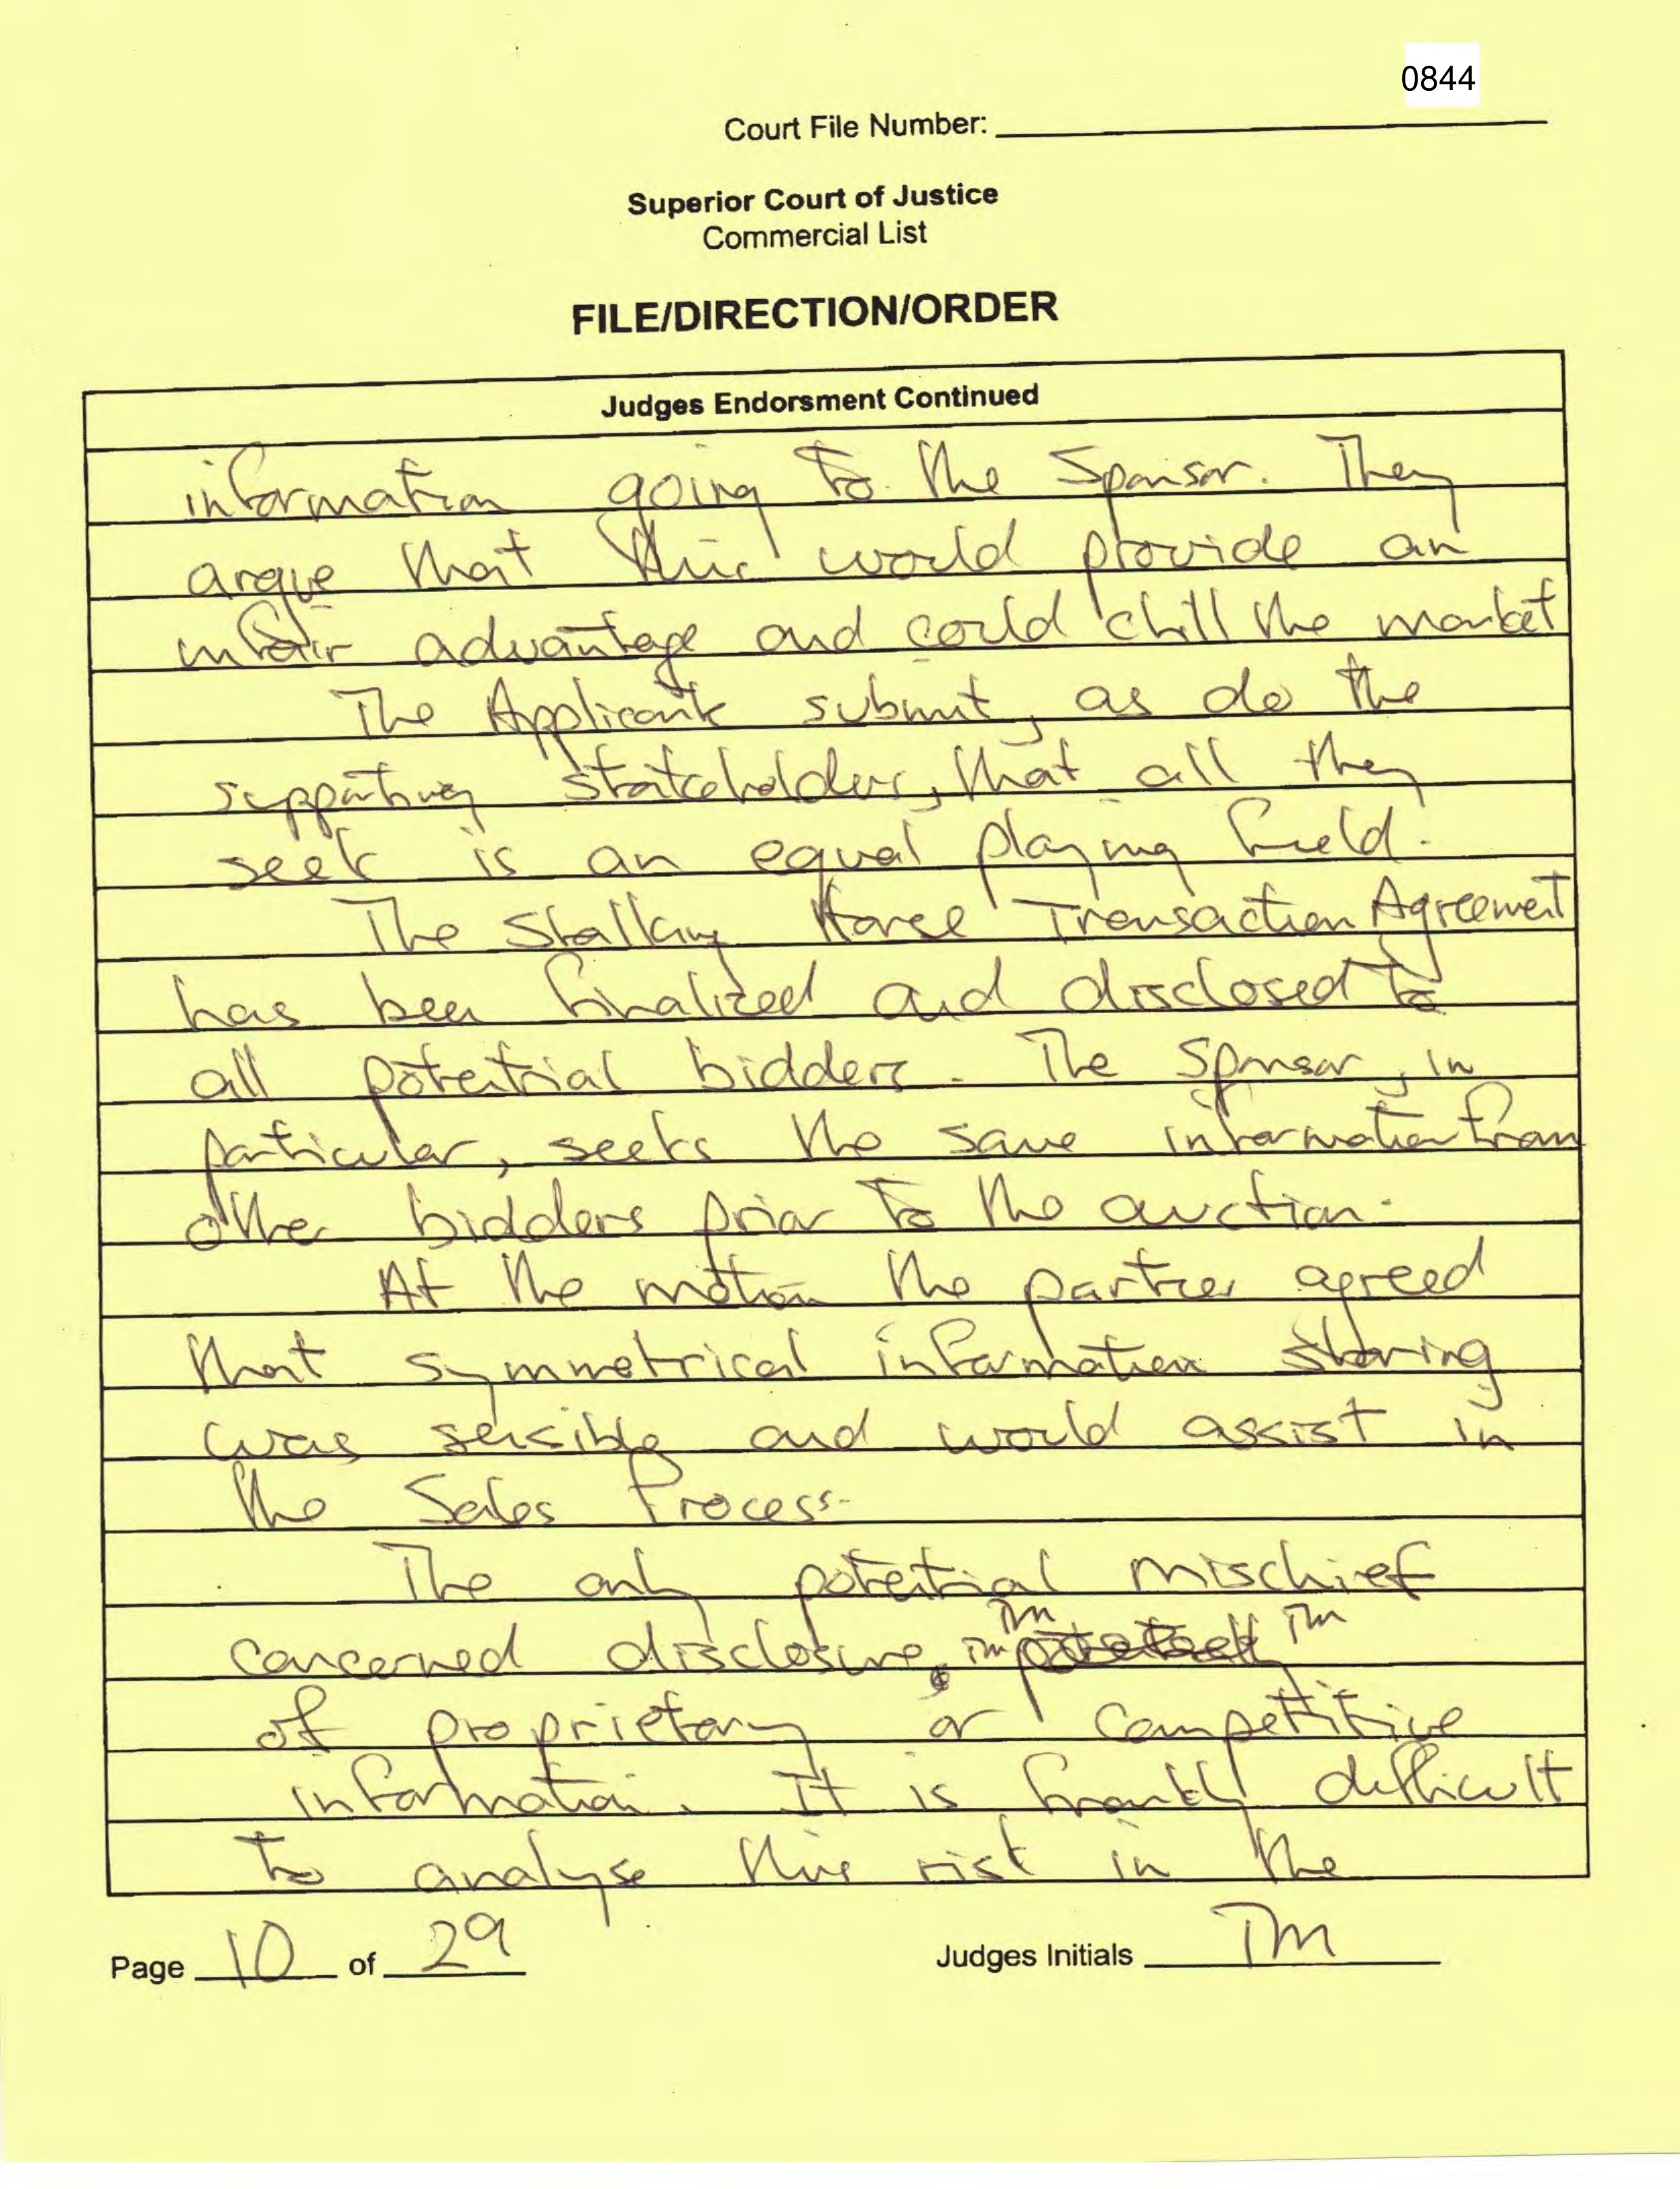 0844
Court File Number:
Superior Court of Justice
Commercial List
FILE/DIRECTION/ORDER
Judges Endorsment Continued
information going to the Sponsor. They
argue that this would provide an
unfair advantage and could chill the market
The Applicants submit, as do the
supporting stakeholders, that all they
seek is an equal playing field.
The Stalking Horse Transaction Agreement
has been finalized and disclosed to
all potential bidders. The Sponsor, in
particular, seeks the same information from
other bidders prior to the auction.
At the motion the parties agreed
that symmetrical information sharing
was sensible and would assist in
the Sales Process.
The only potential mischief
TM
concerned disclosure TM TM
of proprietary or competitive
information. It is frankly difficult
to analyse this risk in the
Page 10 of 29
Judges Initials TM